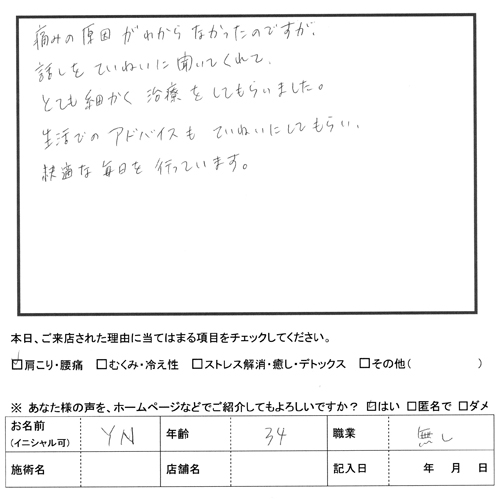 痛みの原因がわからなかったのですが、
話しをていねいに聞いてくれて、
とても細かく治療をしてもらいました。
生活でのアドバイスもていねいにしてもらい、
快適な毎日を行っています。
本日、ご来店された理由に当てはまる項目をチェックしてください。
☑肩こり・腰痛 □むくみ・冷え性 □ストレス解消・癒し・デトックス □その他( )
※ あなた様の声を、ホームページなどでご紹介してもよろしいですか？ ☑はい □匿名で □ダメ
お名前 (イニシャル可) YN 年齢 34 職業 無し
施術名 店舗名 記入日 年 月 日